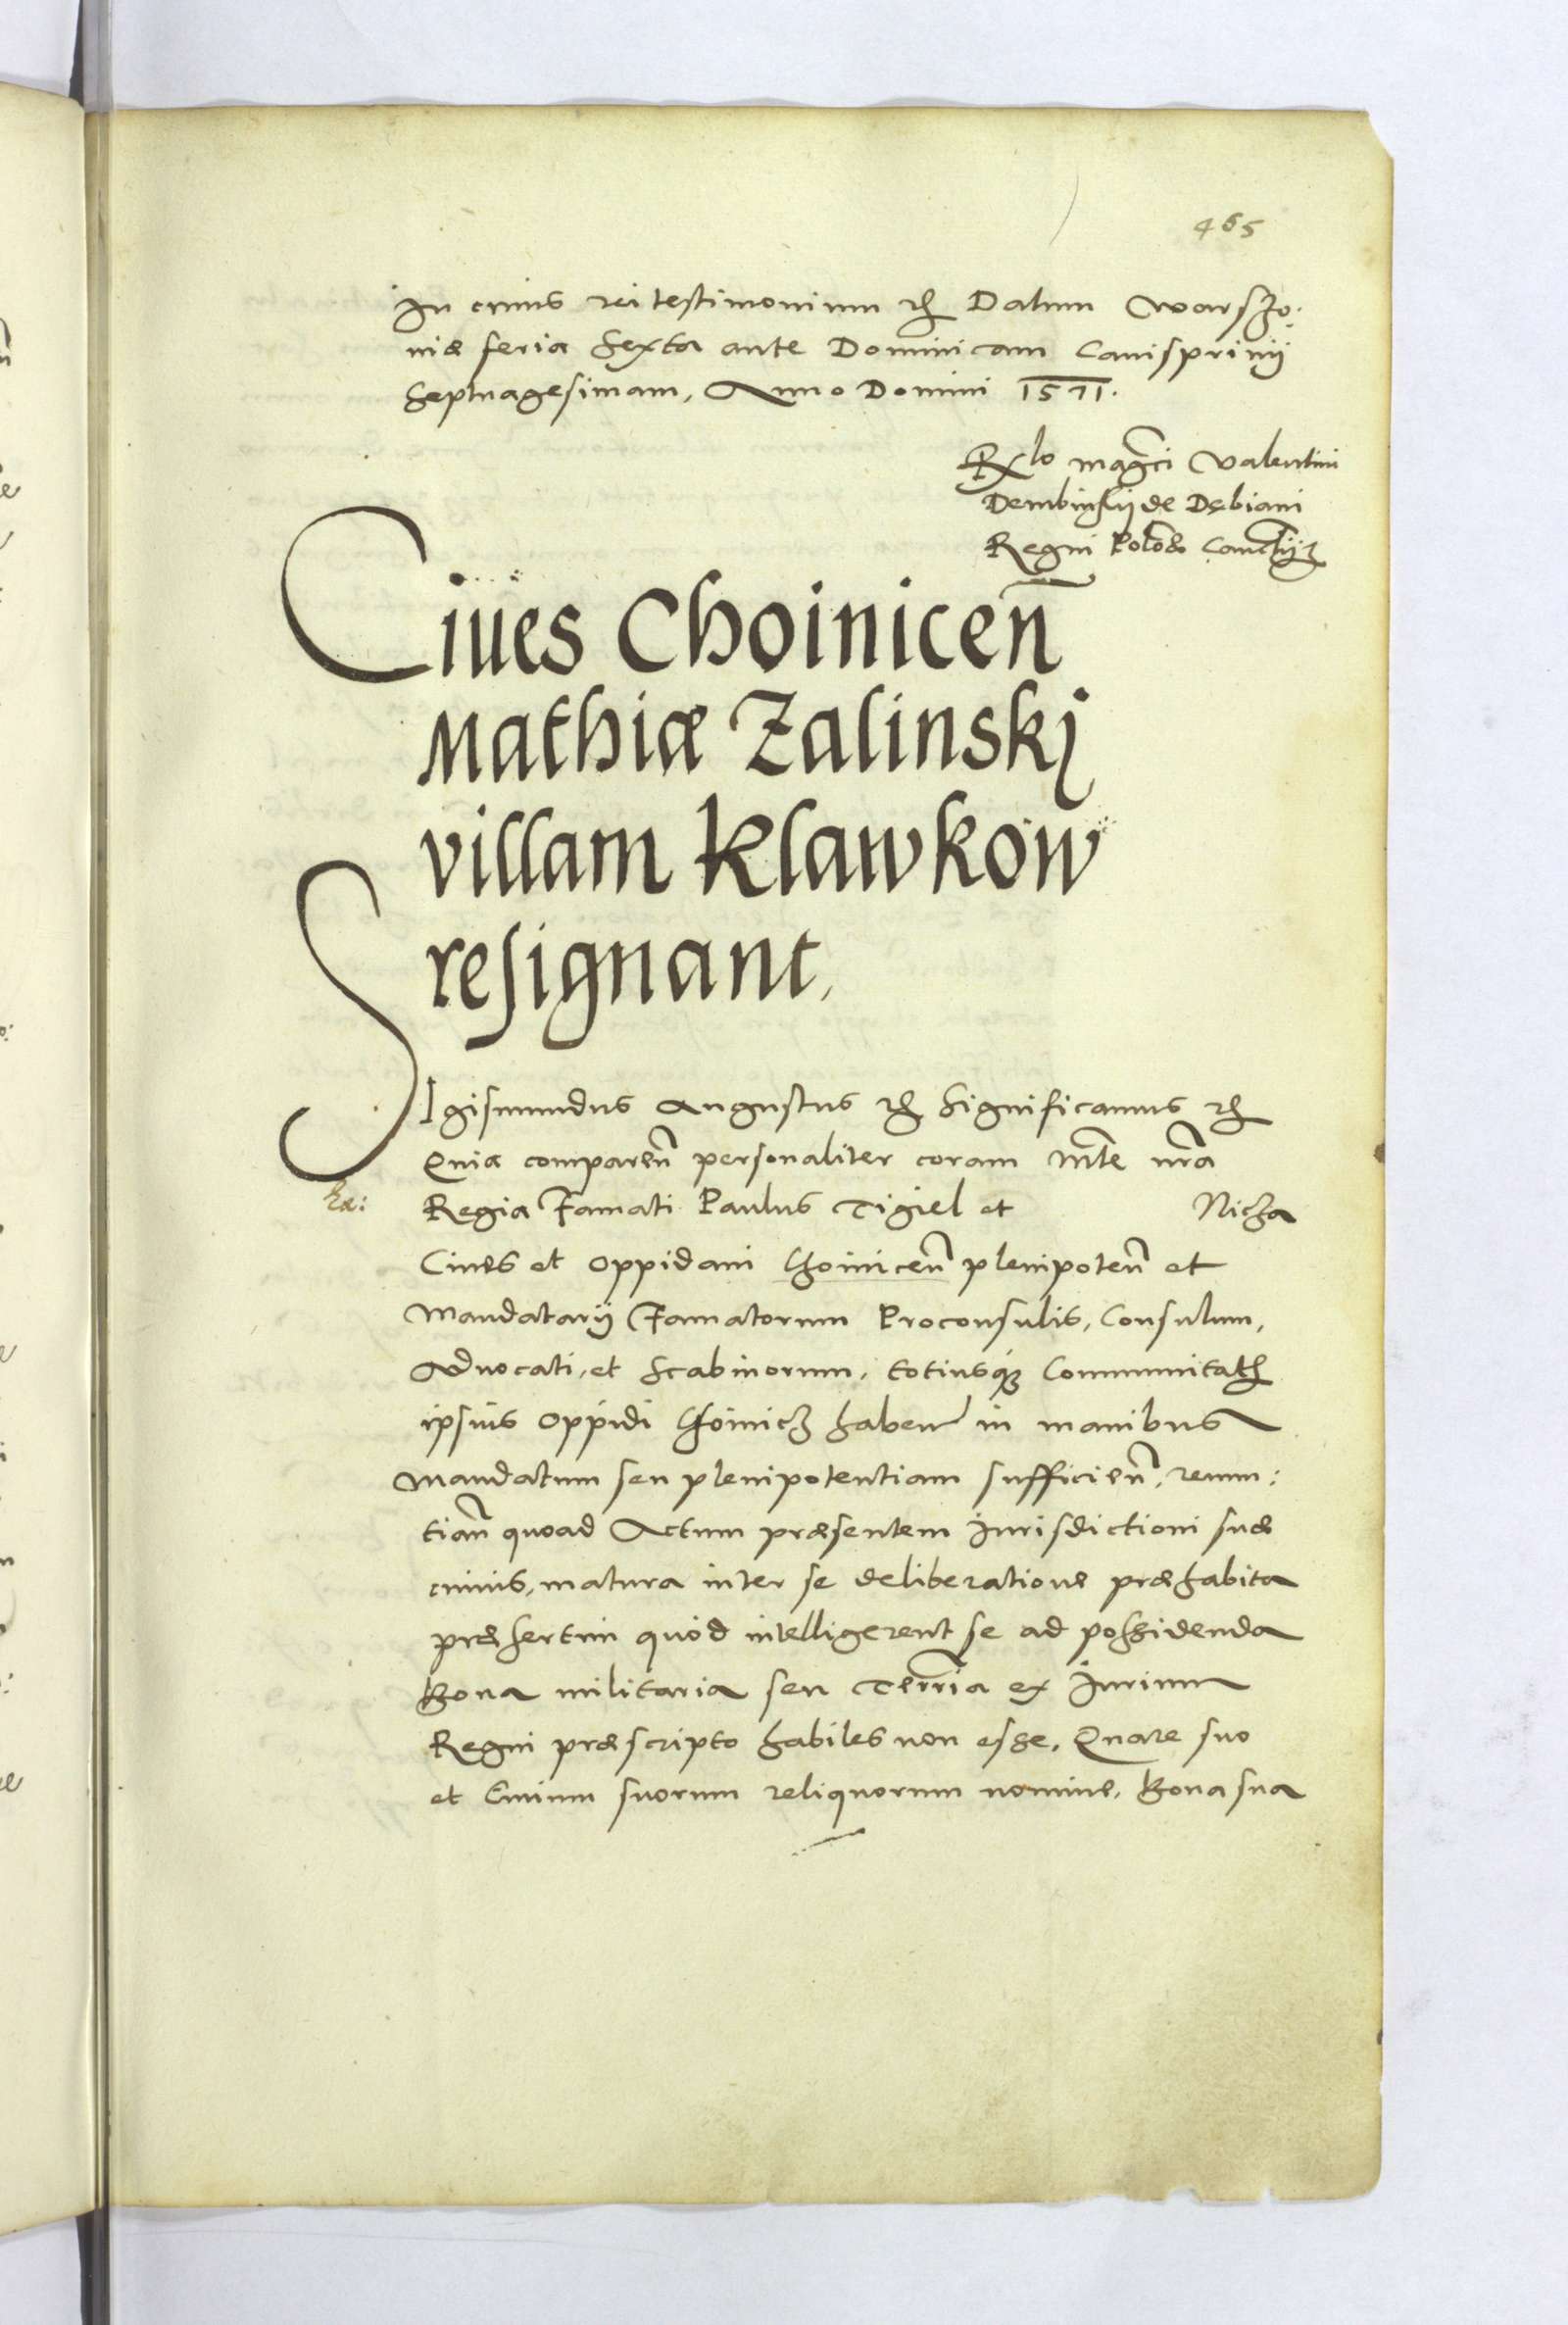 465
In cuius rei testimonium etc Datum Warszo:
uiæ feria Sexta ante Dominicam Carnispriuij
Septuagesimam, Anno Domini 1571.
Rlo magci Valentini
Dembinskij de Dębiani
Regni Poloæ Cancrij etc
Ciues Choiniceñ
Mathiæ Zalinskj
villam Klawkow
resignant,
SIgismundus Augustus etc Significamus etc
Quia compareñ personaliter coram Mte nra
Regia Famati Paulus Tigiel et Nicza
Ciues et Oppidani Choiniceñ plenipoteñ et
Mandatarij Famatorum Proconsulis, Consulum,
Aduocati, et Scabinorum, totiusq; Communitatis
ipsius Oppidi Choinicz habeñ in manibus
mandatum seu plenipotentiam sufficieñ, renun:
tiañ quoad Actum præsentem Jurisdictioni suæ
ciuius, matura inter se deliberatione præhabita
præsertim quód intelligerent se ad possidenda
Bona militaria seu Terria ex Jurium
Regni præscripto habiles non esse, Quare suo
et Ciuium suorum reliquorum nomine, Bona sua